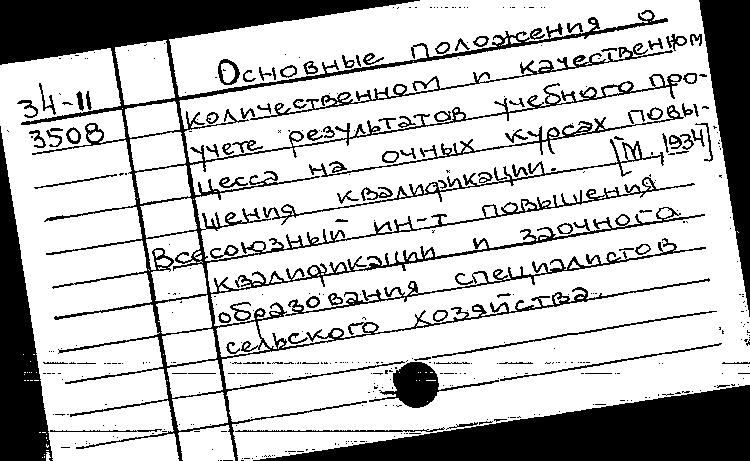 34-11
3508
Основные положения о
количественном и качественном
учете результатов учебного про-
цесса на очных курсах повы-
шения квалификации. [М., 1934]
Всесоюзный ин-т повышения
квалификации и заочного
образования специалистов
сельского хозяйства.